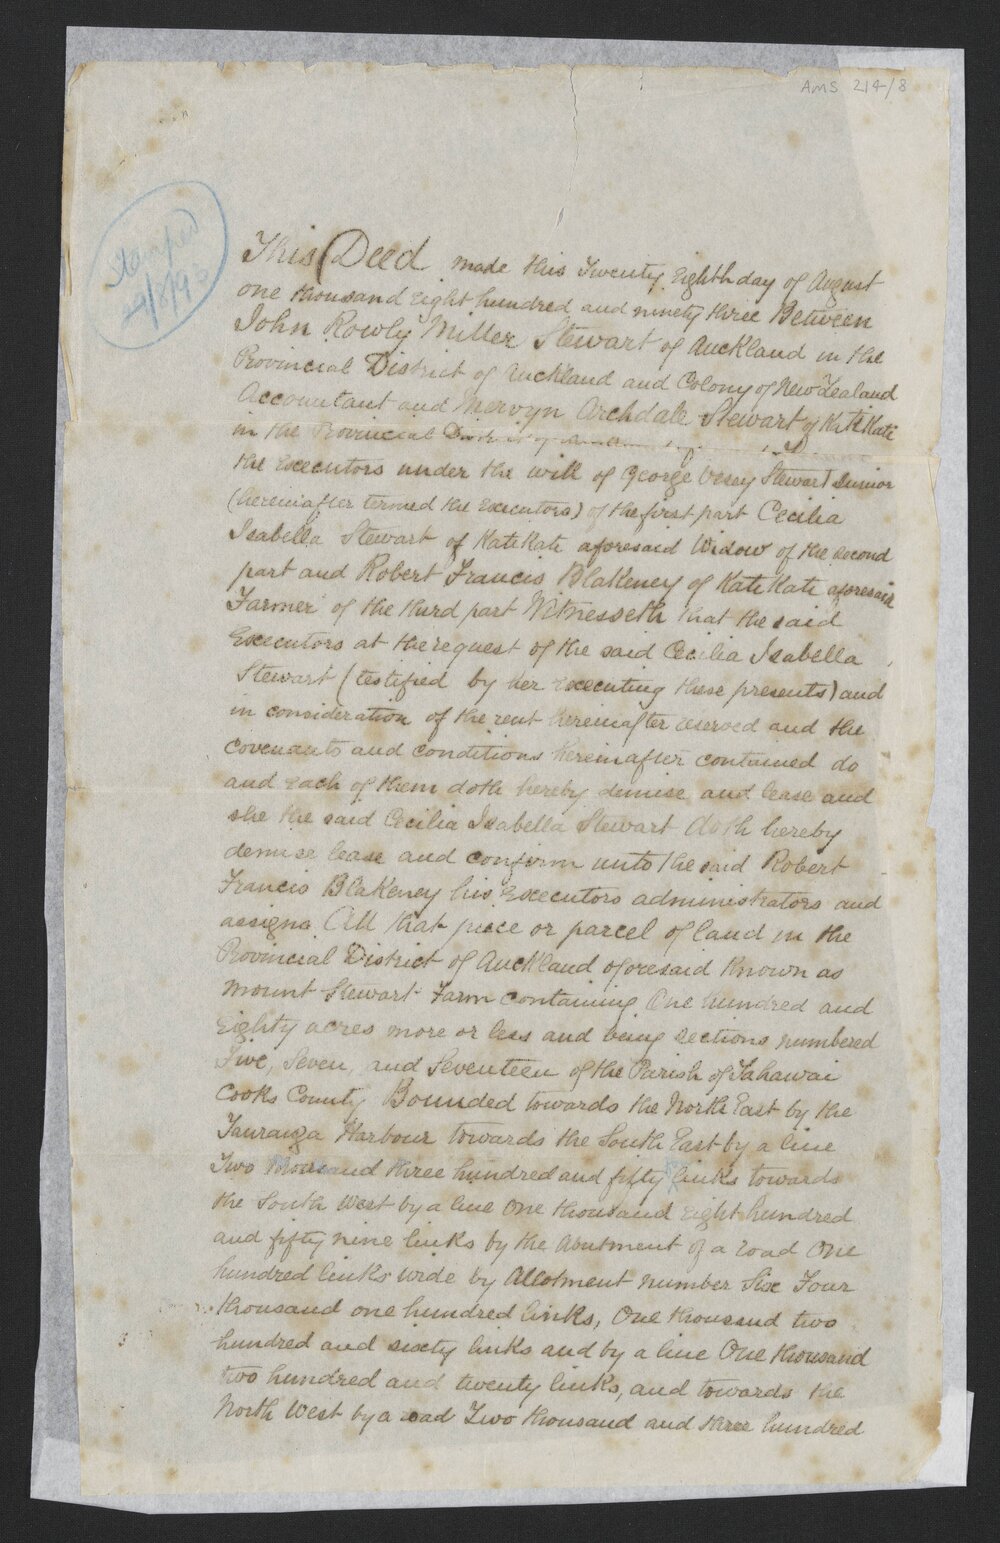 AMS 214/8
Stamped
This Deed made this Twenty Eighth day of August
one thousand eight hundred and ninety three Between
John Rowly Miller Stewart of Auckland in the
Provincial District of Auckland and Colony of New Zealand
Accountant and Mervyn Archdale Stewart of Kati Kati
in the Provincial District of
the executors under the will of George Vesey Stewart Junior
(hereinafter termed the Executors) of the first part Cecilia
Isabella Stewart of Kati Kati aforesaid Widow of the second
part and Robert Francis Blakeney of Kati Kati aforesaid
Farmer of the third part Witnesseth that the said
Executors at the request of the said Cecilia Isabella
Stewart (testified by her executing these presents) and
in consideration of the rent hereinafter reserved and the
covenants and conditions hereinafter contained do
and each of them doth hereby demise and lease and
she the said Cecilia Isabella Stewart doth hereby
demise lease and confirm unto the said Robert
Francis Blakeney his Executors administrators and
assigns All that piece or parcel of land in the
Provincial District of Auckland aforesaid Known as
Mount Stewart Farm containing One hundred and
Eighty acres more or less and being sections numbered
Five, Seven, and Seventeen of the Parish of Tahawai
Cooks County Bounded towards the North East by the
Tauranga Harbour towards the South East by a line
Two thousand three hundred and fifty links towards
the South West by a line One thousand eight hundred
and fifty nine links by the abutment of a road One
hundred links wide by Allotment number Six Four
thousand one hundred links, One thousand two
hundred and sixty links and by a line One thousand
two hundred and twenty links, and towards the
North West by a road Two thousand and three hundred
3